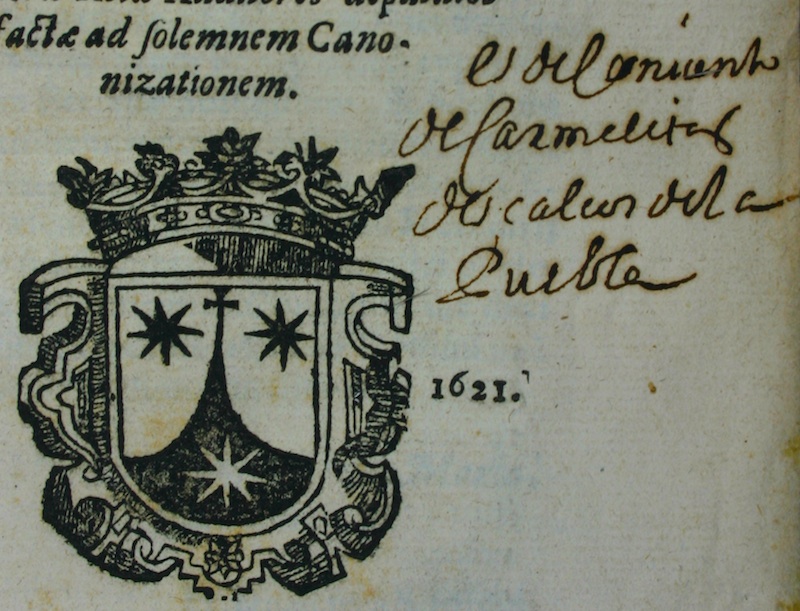 factæ ad solemnem Cano-
nizationem.
es del Conuento
de Carmelitas
descalcos de la
Puebla
1621.